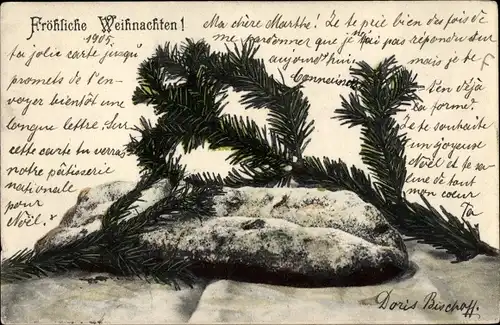 Fröhliche Weihnachten!
1905.
Ma chère Marthe! Je te prie bien des fois de
me pardonner que je n'ai pas répondu sur
ta jolie carte jusqu'
aujourd'hui mais je te
promets de t'en-
voyer bientôt une
longue lettre. Sur
cette carte tu verras
notre pâtisserie
nationale
pour
Noël.
Connaissais
t'en déjà
la forme?
Je te souhaite
un joyeux
Noël et te sa-
lue de tout
mon cœur
Ta
Doris Bischoff.